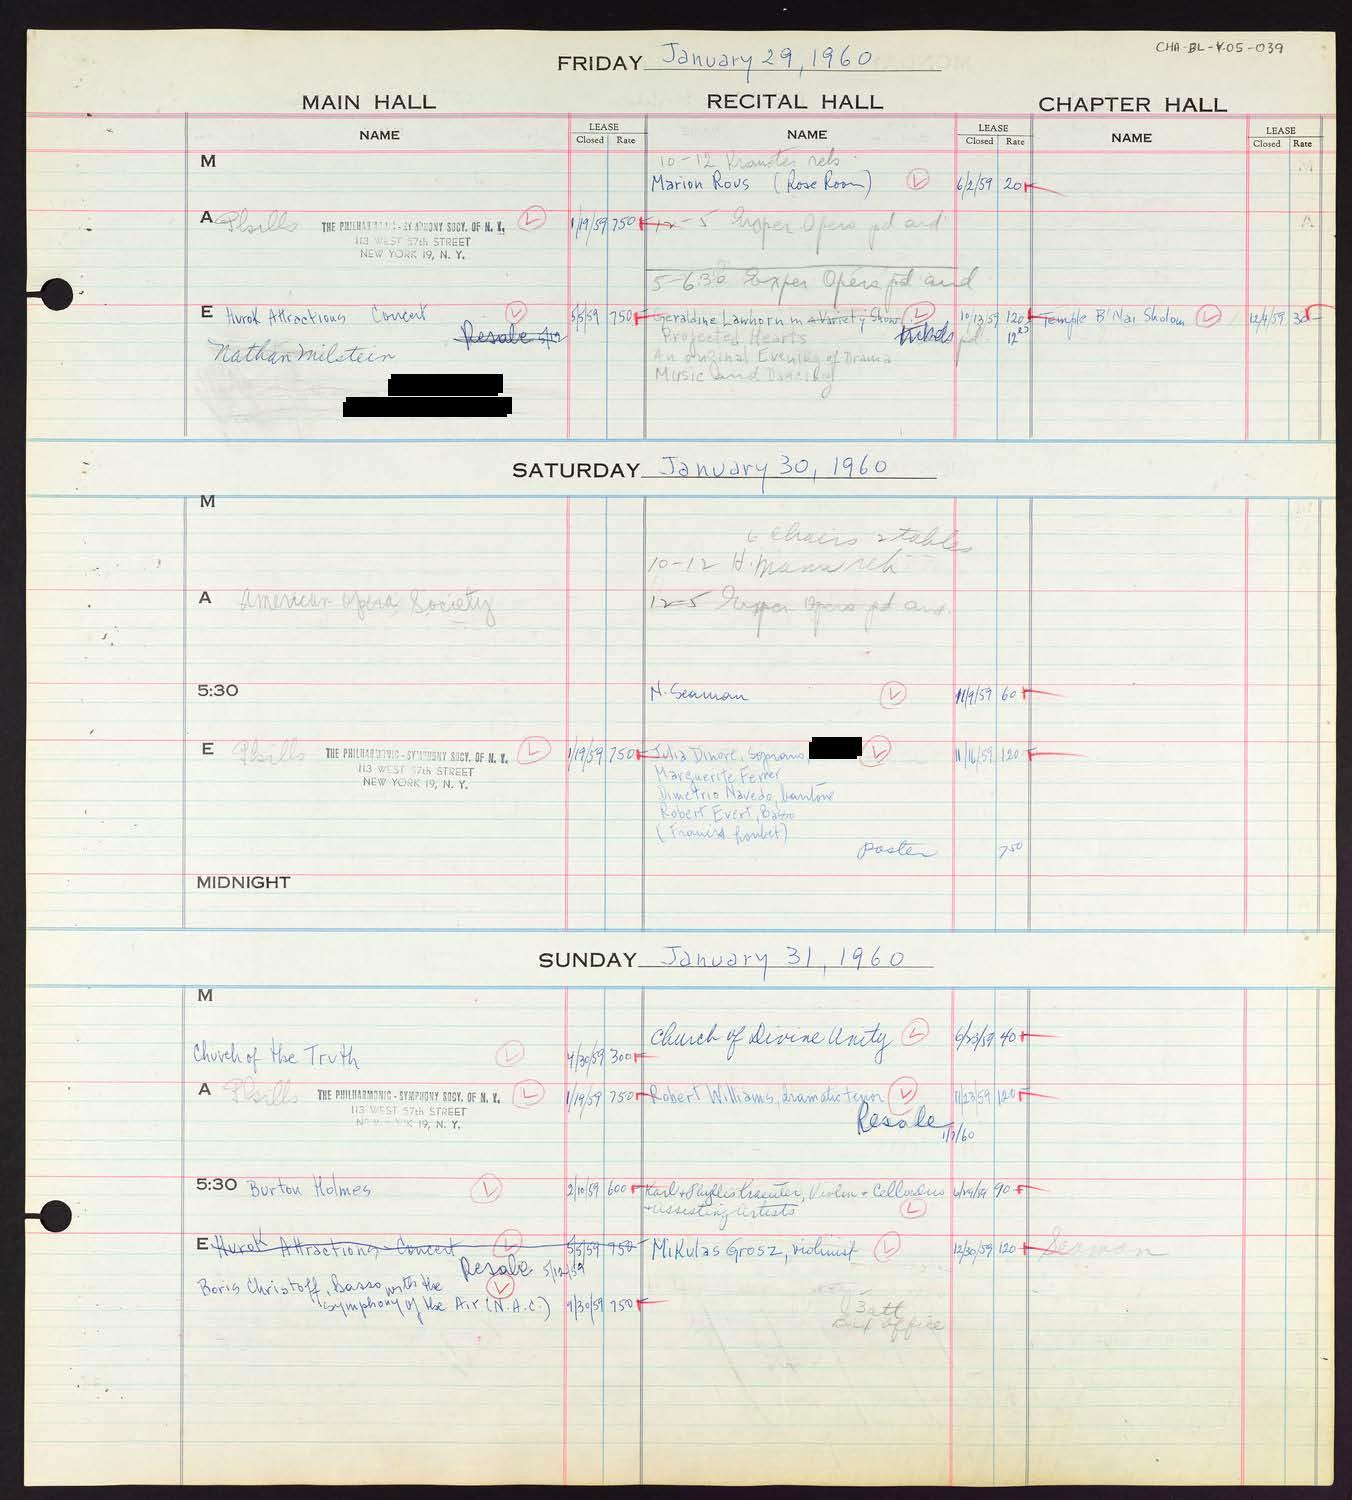 CHA-BL-V.05-039
FRIDAY January 29, 1960
MAIN HALL RECITAL HALL CHAPTER HALL
NAME LEASE Closed Rate NAME LEASE Closed Rate NAME LEASE Closed Rate
M 10-12 Kraeuter reh
Marion Rous (Rose Room) L 6/2/59 20
A Phills THE PHILHARMONIC-SYMPHONY SOCY. OF N. Y. L 1/19/59 750 12-5 Exper Opera pd and
113 WEST 57th STREET
NEW YORK 19, N. Y.
5-6:30 Exper Opera pd and
E Hurok Attractions Concert L 5/5/59 750 Geraldine Lawhorn in a Variety Show L 10/13/59 120 Temple B'Nai Sholom L 12/9/59 30
Resale 5/12 Projected Hearts tickets pd. 12
Nathan Milstein An original Evening of Drama
Music and Dancing
SATURDAY January 30, 1960
M
6 chairs 2 tables
10-12 H. Mann reh
A American Opera Society 12-5 Exper Opera pd and
5:30 N. Seaman L 11/9/59 60
E Phills THE PHILHARMONIC-SYMPHONY SOCY. OF N. Y. L 1/19/59 750 Julia Dinore, Soprano, L 11/16/59 120
113 WEST 57th STREET Marguerite Ferrer
NEW YORK 19, N. Y. Dimetrio Navedo, baritone
Robert Evert, Basso
poster 7 50
MIDNIGHT
SUNDAY January 31, 1960
M
Church of Divine Unity L 6/23/59 40
Church of the Truth L 4/30/59 300
A Phills THE PHILHARMONIC-SYMPHONY SOCY. OF N. Y. L 1/19/59 750 Robert Williams, dramatic tenor L 11/23/59 120
113 WEST 57th STREET Resale
NEW YORK 19, N. Y. 1/7/60
5:30 Burton Holmes L 2/10/59 600 Karl + Phyllis Kraeuter, Violin + Cello duo 90
+ Assisting Artists L
E Hurok Attractions Concert L 5/5/59 750 Mikulas Grosz, violinist L 12/30/59 120 Seaman
Resale 5/12/59
Boris Christoff, Basso with the L
Symphony of the Air (N.A.C.) 9/30/59 750
Box office